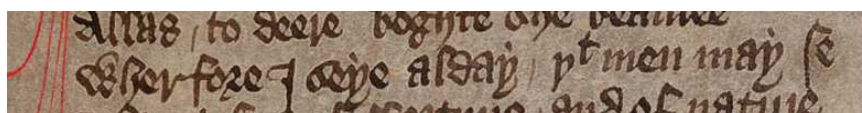 Allas / to deere boghte she beautee
Wherfore I seye alday / yt men may se
and of nature